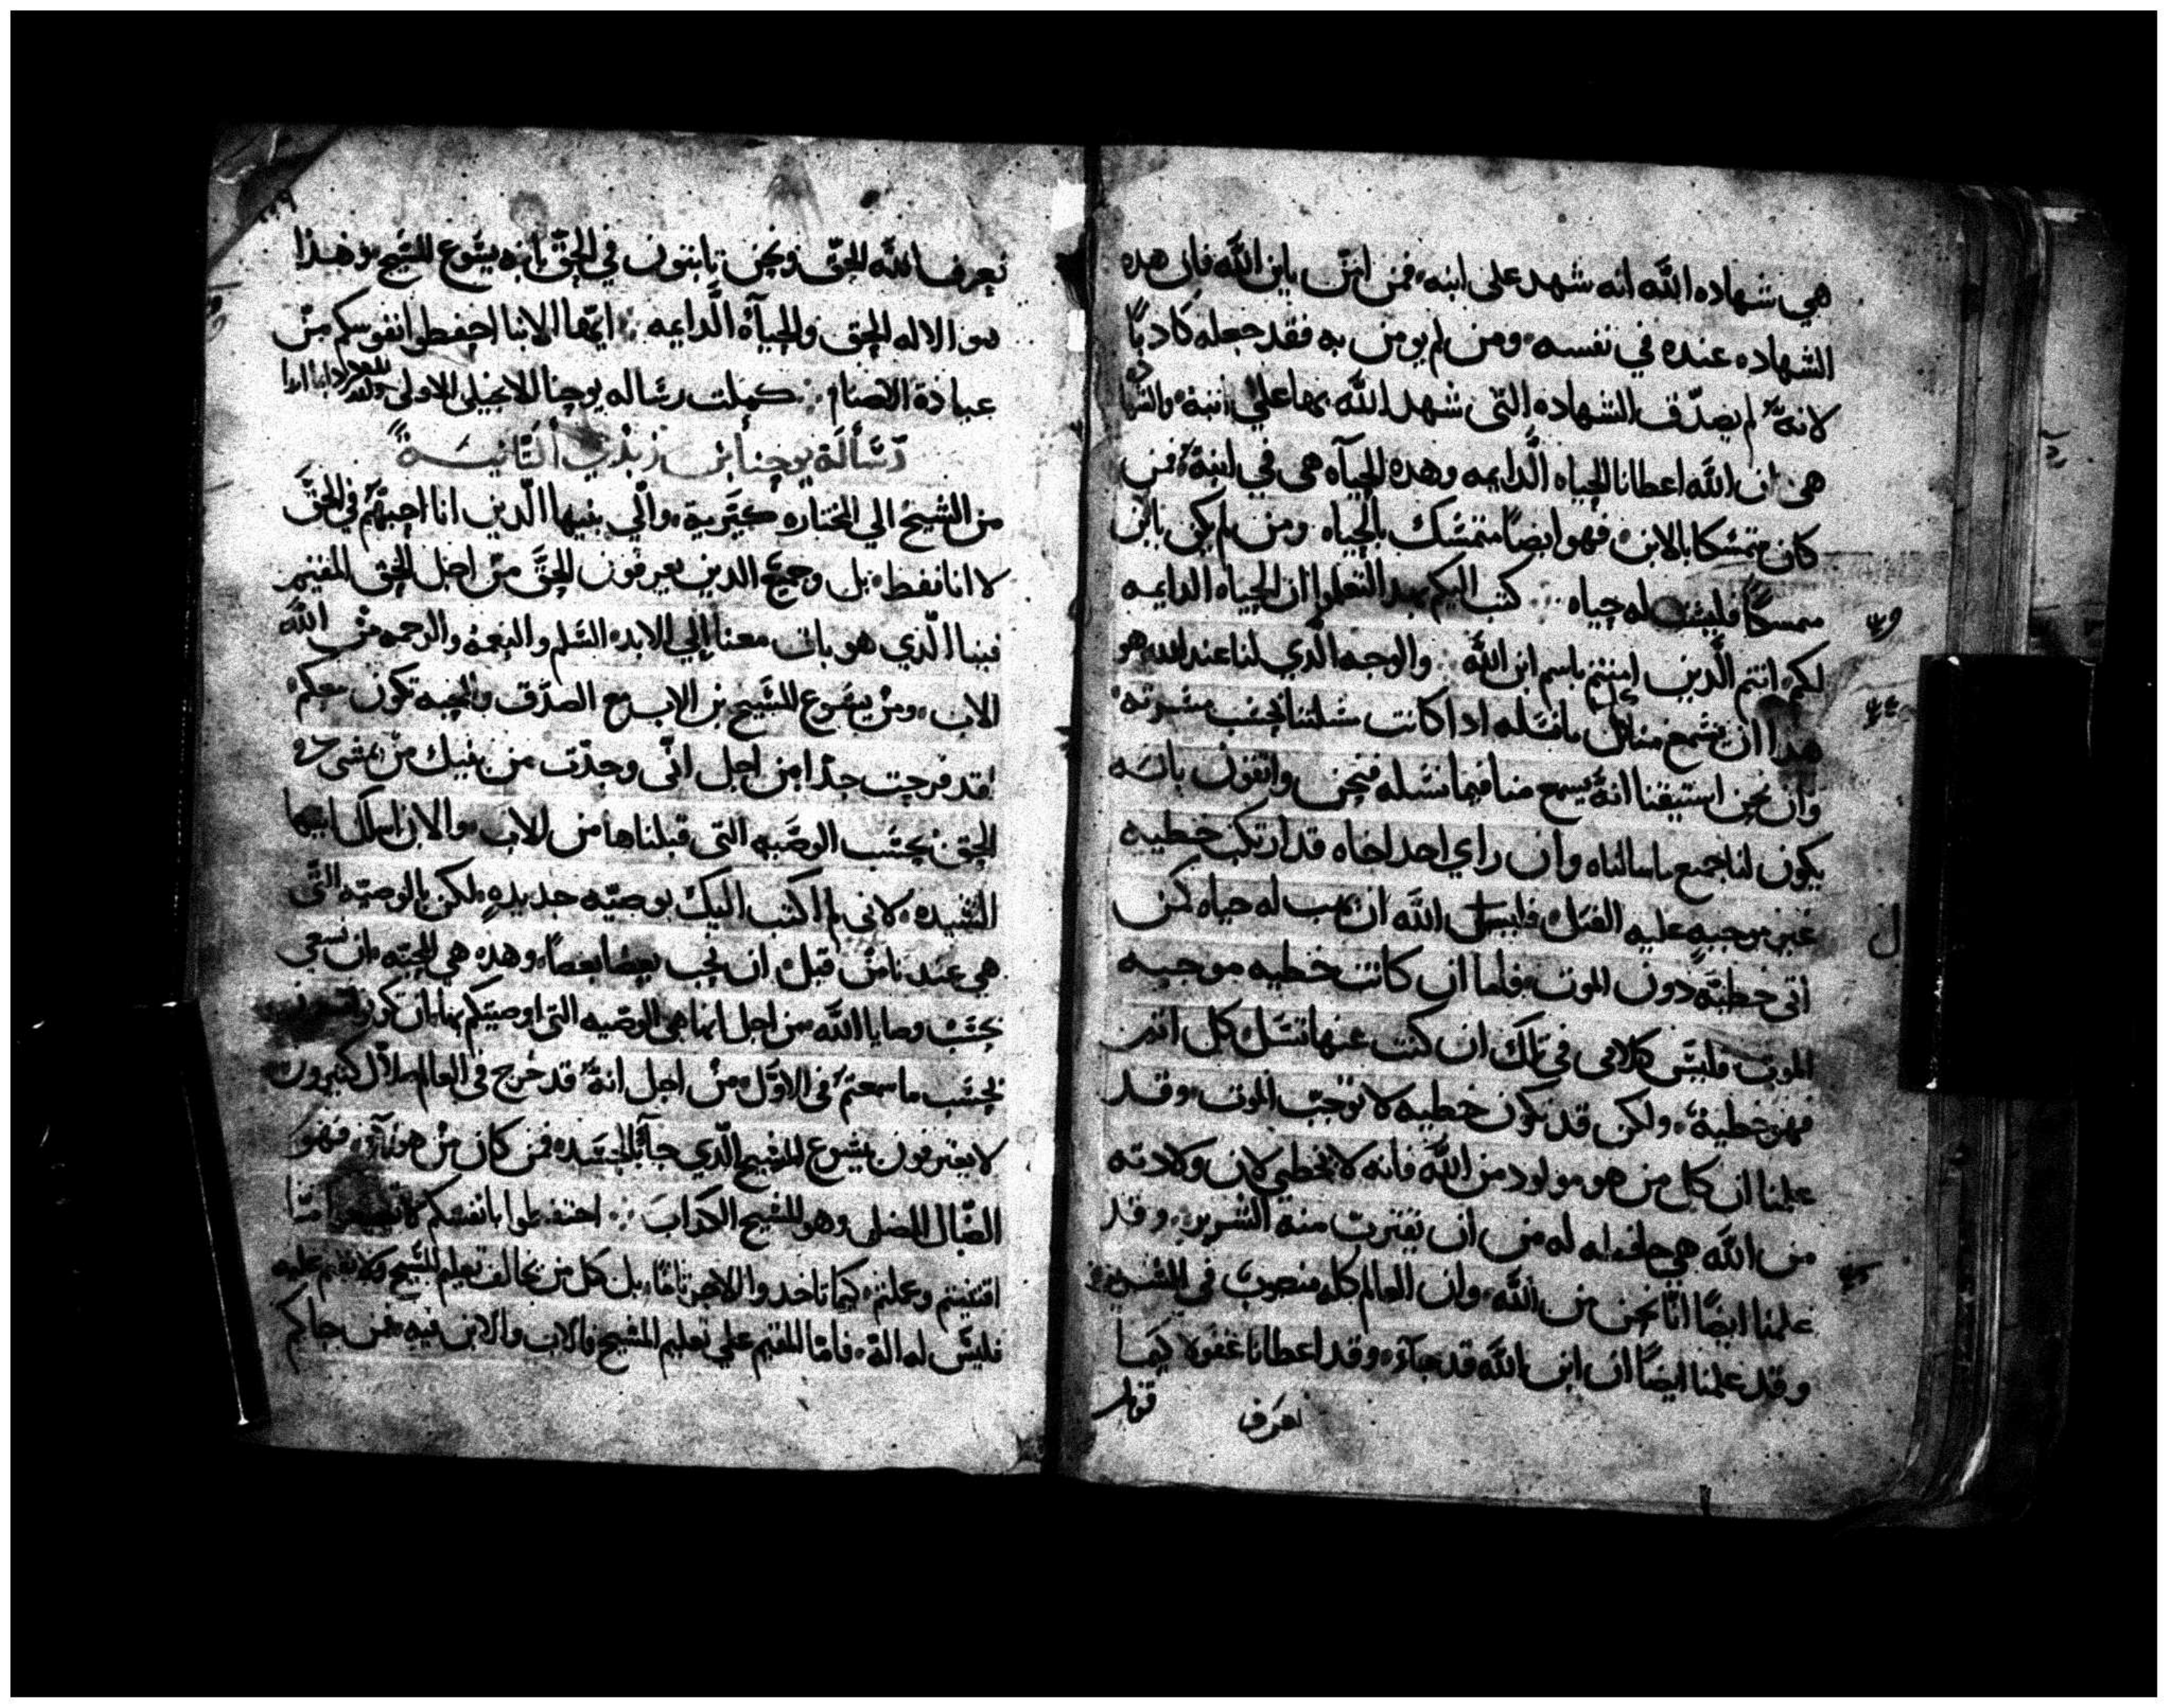 هي شهاده الله انه شهد على ابنه فمن امن بابن الله فان هده
الشهاده عنده في نفسه ومن لم يومن به فقد جعله كادبًا
لانهٌ لم يصدّق الشهاده التّى شهد الله بها علي ابنهٌ والشها
هى ان الله اعطانا الحياه الَّدايمه وهده الحيآه هى في ابنهٌ فمن
كان متمسّكا بالابن فهو ايضاً متمسّك بالحياه ومن لم يكن بابن
متمسكاً فليست له حياه كتب اليكم بهدا لتعلموا ان الحياه الدايمه
لكم انتم الَّدين امنتم باسم ابن اللهَ والوجه الَّدي لنا عند الله هو
هدا ان يسَّمع منا كل ما نسَله ادا كانت مسَلتنا بحسَب مسَرته
وان نحن استيقنا انهٌ يسمع منا فيما نسَله فنحن واتقون بانه
يكون لنا جميع ما سالناه وان راي احد اخاه قد ارتكب خطيه
غير موجبه عليه القتل فليسل الله ان يهب له حياه كمن
اتى خطيّهً دون الموت فاما ان كانت خطيه موجبه
الموت فليسَ كلامى في تلك ان كنت عنها تسَل كل اتم
فهو خطيهٌ ولكن قد تكون خطيه لا توجبَ الموت وقد
علمنا ان كل من هو مولود من اللهَ فانه لا يخطي لان ولادته
من الله هي حافظه له من ان يقترب منه الشرير وقد
علمنا ايضًا انَّا نحن من اللهَ وان العالم كله منصوبَ في الشرير
وقد علمنا ايضًا ان ابن اللهَ قد جآء وقد اعطانا عقولا كيما
نعرف
قوبل
نعرف الله الحقّ ونحن تابتون في الحقّ بابنه يسَوع المسَيح وهذا
هو الاله الحق والحيآه الَّدايمه ايّها الابنا احفظوا نفوسكم منْ
عبادة الاصنام كملت رسَاله يوحنا الانجيلى الاولى
رّسَّالَة يوحنا ابن زبدي الثّانيسَةً
من الشيخ الي المختاره كيَريه والّي بنيها الّدين انا احبهّم في الحقّ
لا انا فقط بل وجميعٌ الدين يعرفون الحقَّ منْ اجل الحق المقيم
فينا الّدي هو بات معنا الي الابد السَلم والنعمهْ والرحمه منْ الله
الاب ومنْ يسَوع المسَيح بن الاب مع الصدَّق والمحبه تكون معكم
لقد فرحت جدّا من اجل انّى وجدّت من بنيك منْ يمشى في
الحق بحسَب الوصَيه التي قبلناها من الاب والان اسالك ايتها
السَّيده لانى لم اكتب اليك بوصيّه جديدهٍ لكن بالوصيّه التَّى
هي عندنا منْ قبل ان نحب بعضنا بعضاً وهده هى المحبّه ان نسعى
بحسَب وصايا الله من اجل انها هى الوصّيه التي اوصيتكم بها بان تكونوا
بحسَب ما سمعتمْ فى الاوّل منْ اجل انهٌ قد خرج في العالم ضلاّل كتيرون
لا يعترفون بيسَوع المسيح الّدي جآ بالجسَد فمن كان منْ هولآءِ فهوَ
الضّال المضلى وهو المسَيح الكدابَ احتفظوا بانفسَكم
اقتنيتم وعملتم كيما تاخدوا الاجر تامًا بل كل من يخالف تعليم المسَيح ولا يقيم عليه
فليسَ له الهٌ فامّا المقيم علي تعليم المسَيح فالاب والابن فيه فمن جاكم